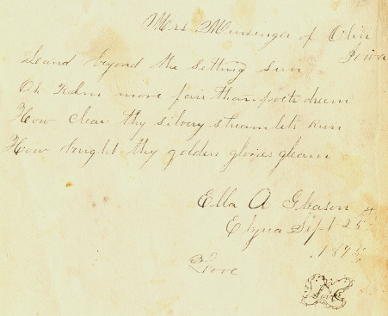 Mrs Messenger of Olin
Iowa
Land beyond the setting sun
Oh Realm more fair than poets dream
How clear thy silvery streamlets run
How bright thy golden glories gleam
Ella A Gleason
Elyria Sept 25th
Love